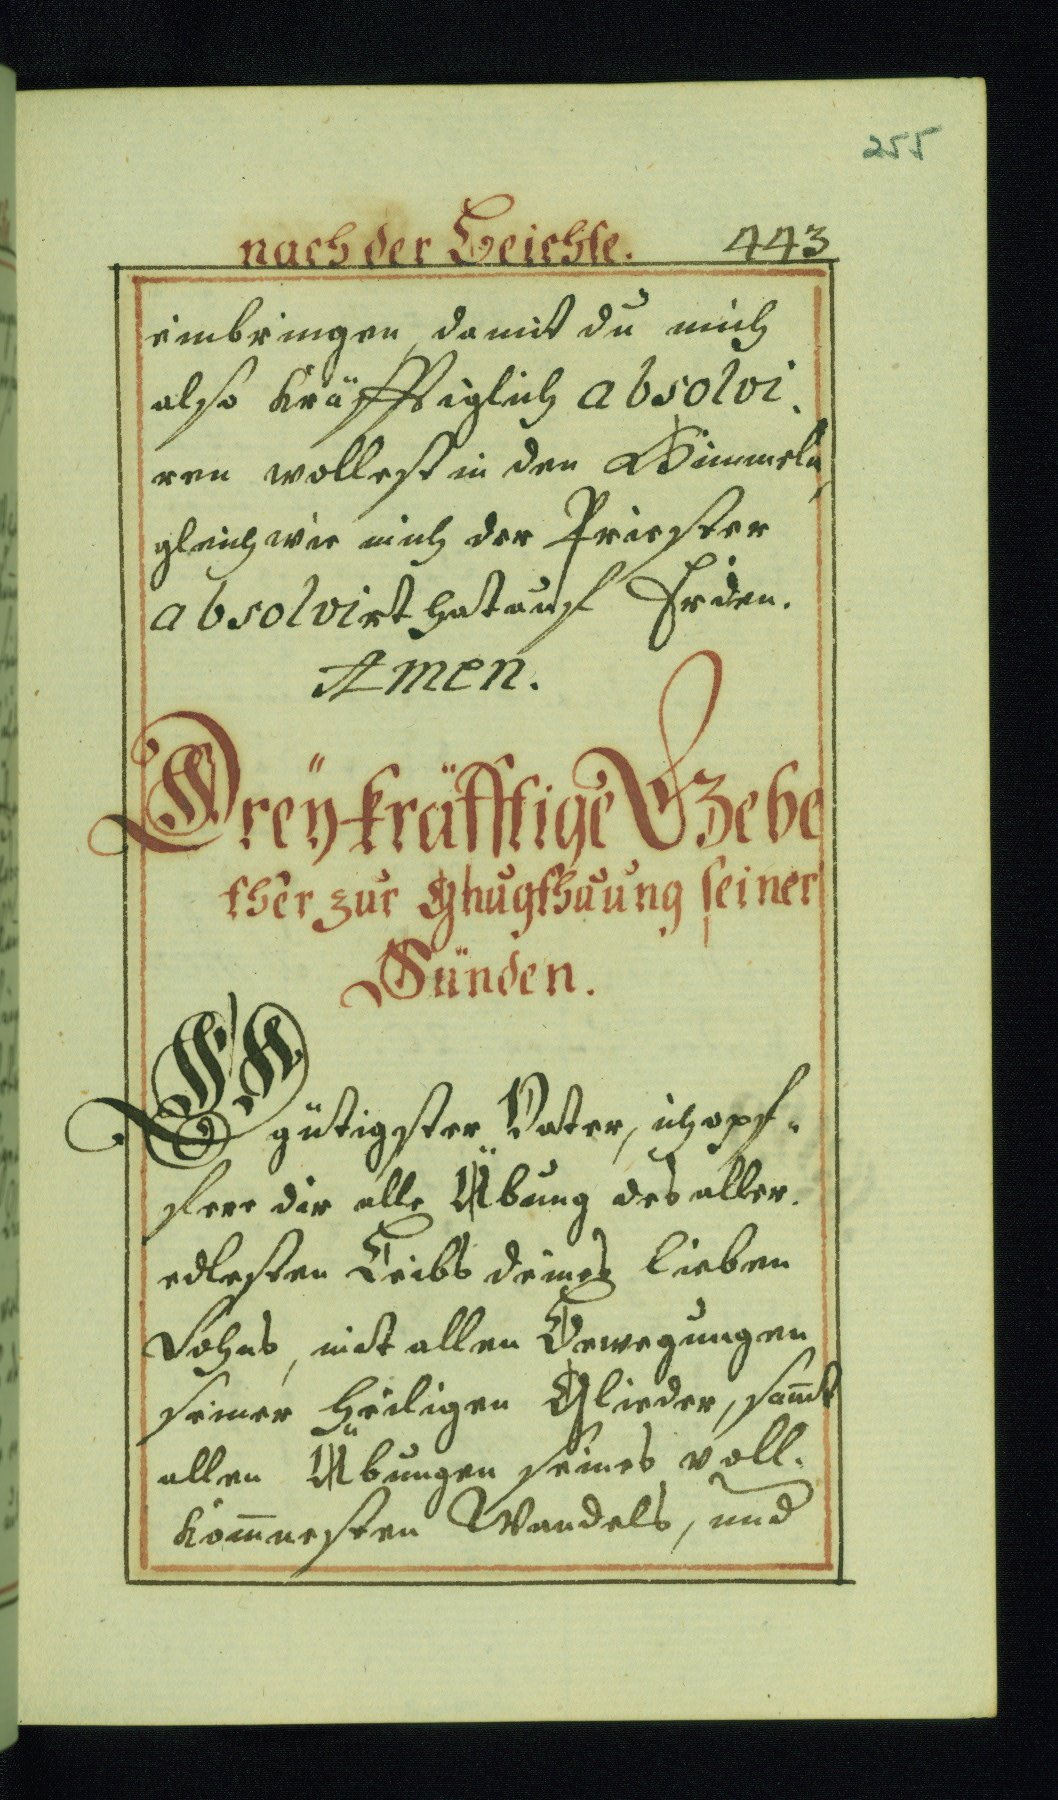 255
nach der Beichte. 443
einbringen, damit du mich
also kräfftiglich absolvi-
ren wollest in den Himmeln
gleich wie mich der Priester
absolvirt hat auf Erden.
Amen.
Dreÿ kräfftige Gebe
ther zur Gnugthuung seiner
Sünden.
gütigster Vater, ich opf-
fere dir alle Übung des aller-
edlesten Leibs deines lieben
Sohns, mit allen Bewegungen
seiner heiligen Glieder, sam̄t
allen Übungen seines voll-
kom̄nesten Wandels, und